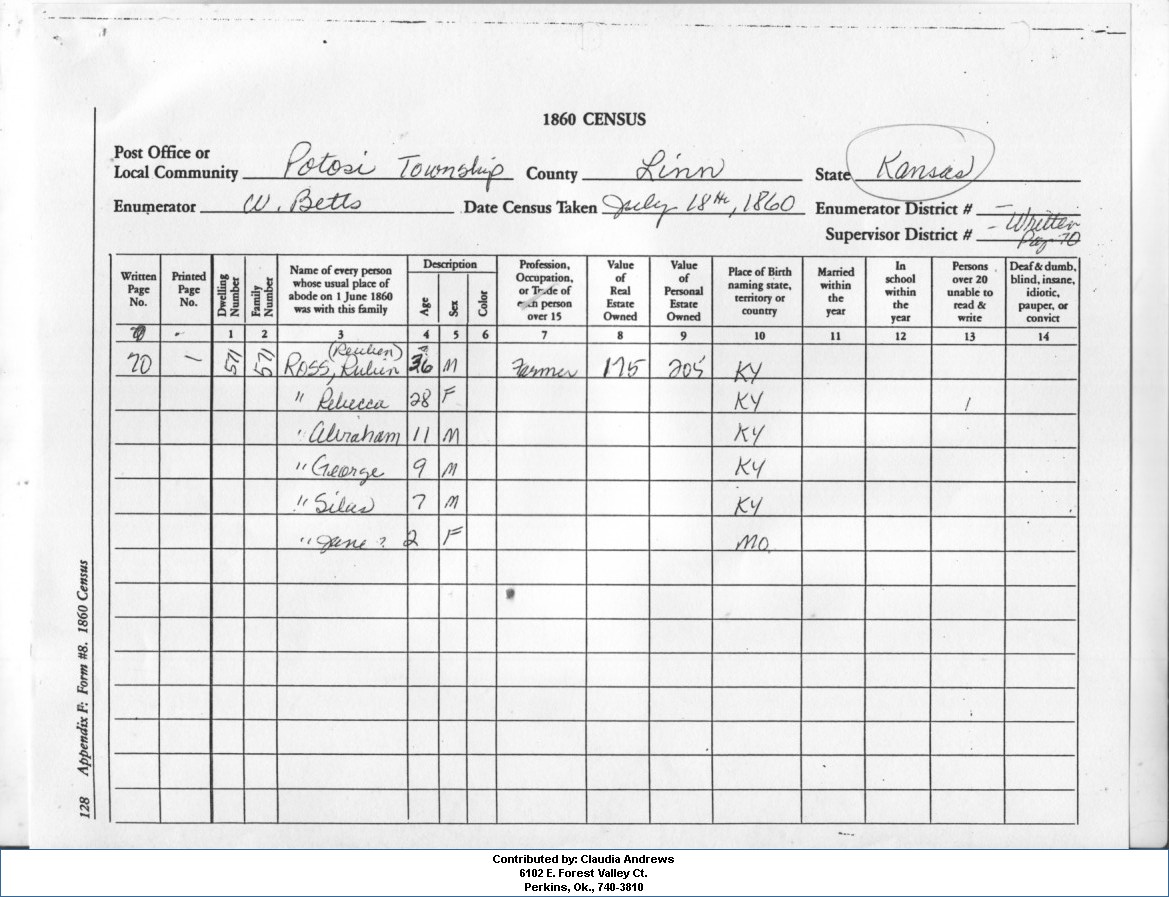 1860 CENSUS
Post Office or
Local Community Potosi Township County Linn State Kansas
Enumerator W. Betts Date Census Taken July 18th, 1860 Enumerator District # –
Supervisor District # – Written Pag 70
Written Page No. Printed Page No. Dwelling Number Family Number Name of every person whose usual place of abode on 1 June 1860 was with this family Description Age Sex Color Profession, Occupation, or Trade of each person over 15 Value of Real Estate Owned Value of Personal Estate Owned Place of Birth naming state, territory or country Married within the year In school within the year Persons over 20 unable to read & write Deaf & dumb, blind, insane, idiotic, pauper, or convict
1 2 3 4 5 6 7 8 9 10 11 12 13 14
(Reuben)
70 – 571 571 ROSS, Rubin 36 M Farmer 175 205 KY
" Rebecca 28 F KY 1
" Abraham 11 M KY
" George 9 M KY
" Silas 7 M KY
" Jane ? 2 F MO.
128 Appendix F: Form #8. 1860 Census
Contributed by: Claudia Andrews
6102 E. Forest Valley Ct.
Perkins, Ok., 740-3810